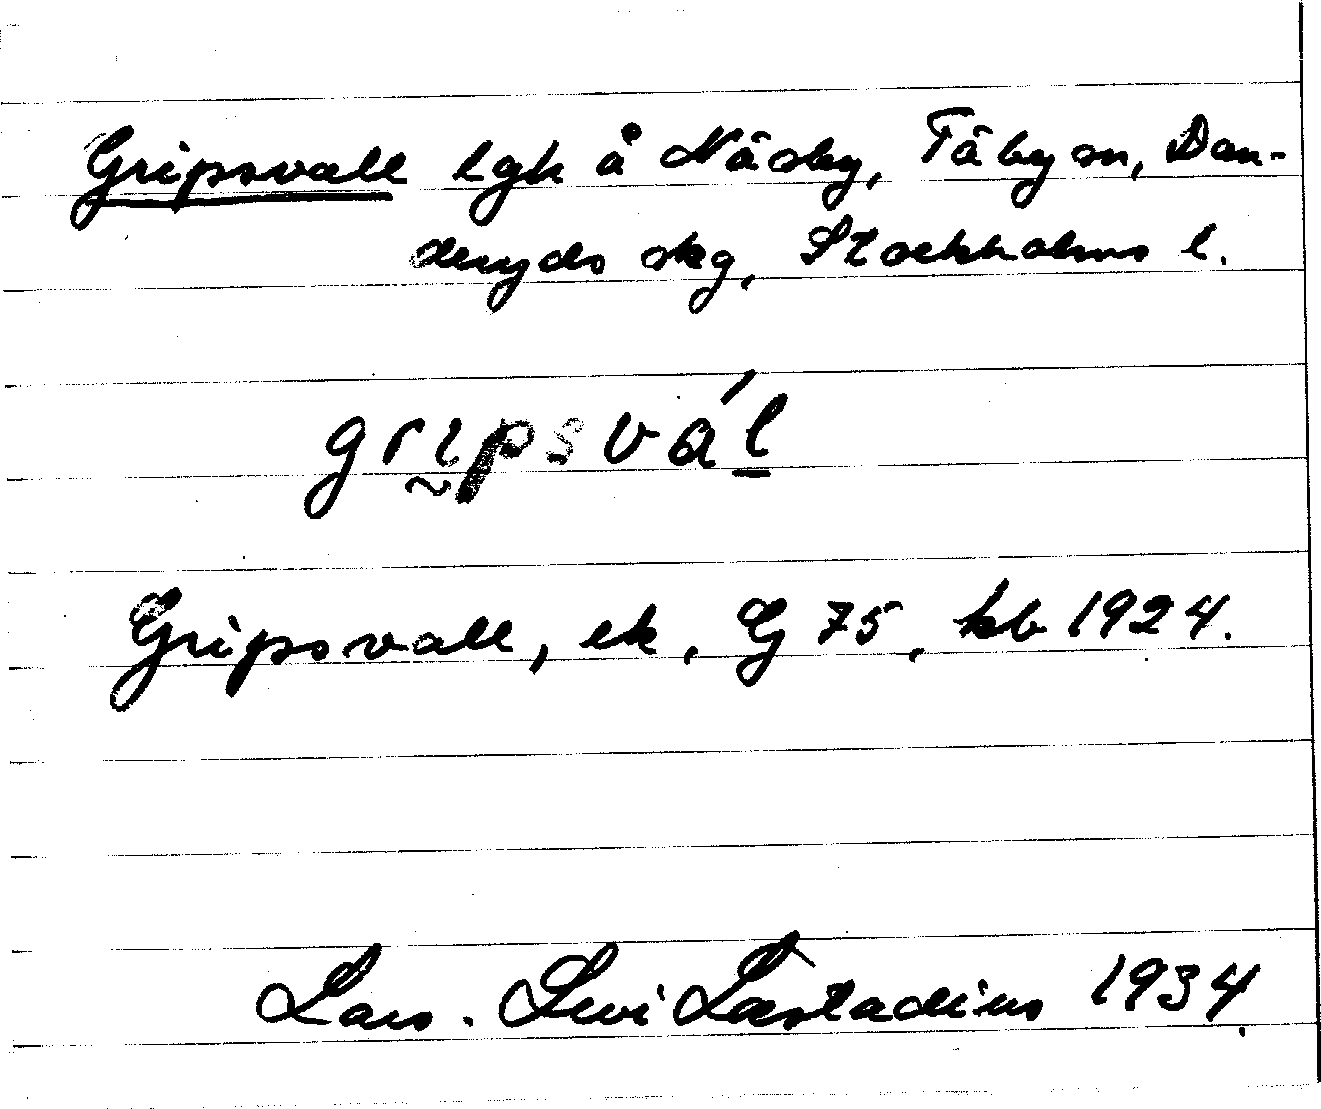 Gripsvall lgh å Näsby, Täby sn, Dan-
deryds skg, Stockholms l.
grɩ̰psvál̲
Gripsvall, ek, EJ 75, kb 1924.
Lars. Levi Læstadius 1934.